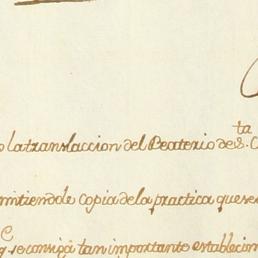 la translaccion del Beaterio de S.ta
mitiendole copia de la practica que se
q.e se consiga tan importante establecim